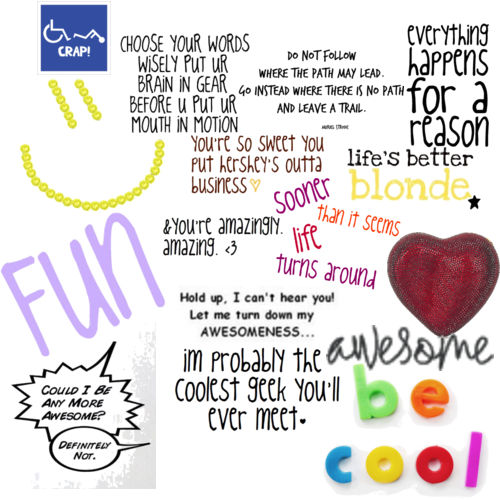 CRAP!
CHOOSE YOUR WORDS
WiSELY PUT UR
BRAIN IN GEAR
BEFORE U PUT UR
MOUTH IN MOTION
DO NOT FOLLOW
WHERE THE PATH MAY LEAD.
GO INSTEAD WHERE THERE IS NO PATH
AND LEAVE A TRAIL.
everything
happens
for a
reason
You're so sweet you
put hershey's outta
business
life's better
blonde.
sooner
than it seems
life
turns around
&You're amazingly.
amazing. <3
FUN
Hold up, I can't hear you!
Let me turn down my
AWESOMENESS...
awesome
im probably the
coolest geek you'll
ever meet
COULD I BE
ANY MORE
AWESOME?
DEFINITELY
NOT.
be
cool